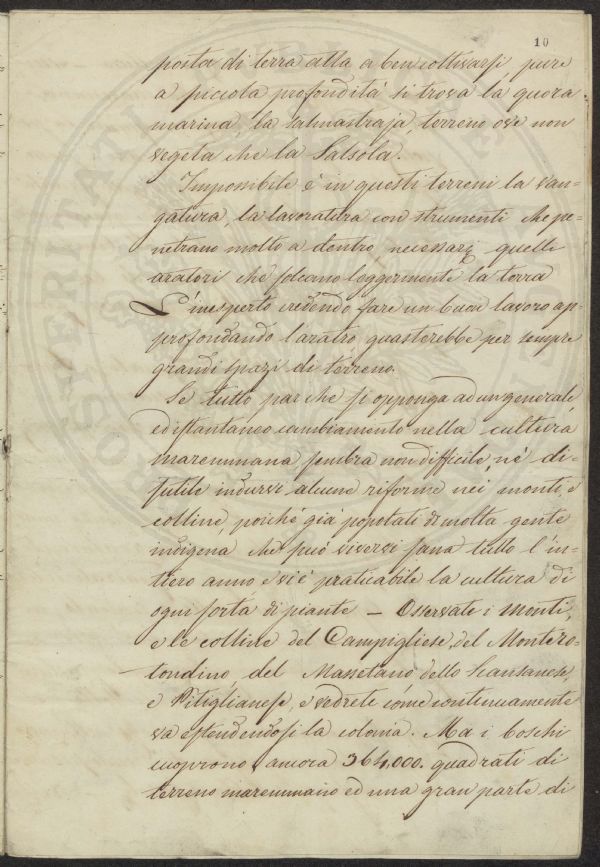 10
posta di terra atta a ben coltivarsi pure
a piccola profondità si trova la quora
marina, la salmastraja, terreno ove non
vegeta che la Salsola.
Impossibile è in questi terreni la van-
gatura, la lavoratura con strumenti che pe-
netrano molto a dentro, necessarj quelli
aratori che solcano leggermente la terra
L'inesperto credendo fare un buon lavoro ap-
profondando l'aratro, guasterebbe per sempre
grandi spazi di terreno.
Se tutto par che si opponga ad un generale,
ed istantaneo cambiamento nella cultura
maremmana sembra non difficile, nè di-
sutile indurvi alcune riforme nei monti, e
colline, poichè già popolati di molta gente
indigena, che può vivervi sana tutto l'in-
tiero anno e vi è praticabile la cultura di
ogni sorta di piante — Osservate i monti,
e le colline del Campigliese, del Montero-
tondino, del Massetano, dello Scansanese,
e Pitiglianese, e vedrete come continuamente
va estendendosi la colonia. Ma i boschi
cuoprono ancora 364,000. quadrati di
terreno maremmano ed una gran parte di